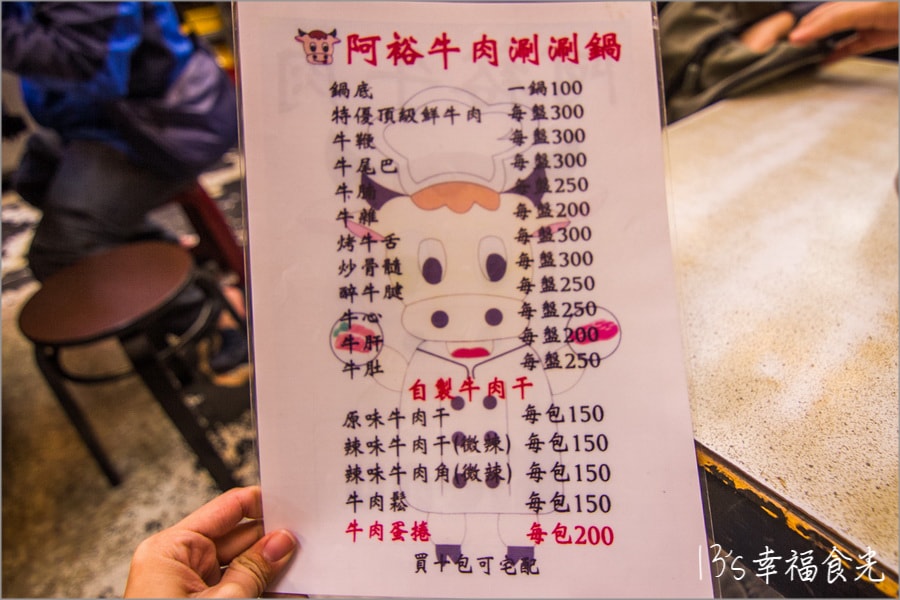 阿裕牛肉涮涮鍋
鍋底 一鍋100
特優頂級鮮牛肉 每盤300
牛鞭 每盤300
牛尾巴 每盤300
牛腩 每盤250
牛雜 每盤200
烤牛舌 每盤300
炒骨髓 每盤300
醉牛腱 每盤250
牛心 每盤250
牛肝 每盤200
牛肚 每盤250
自製牛肉干
原味牛肉干 每包150
辣味牛肉干(微辣) 每包150
辣味牛肉角(微辣) 每包150
牛肉鬆 每包150
牛肉蛋捲 每包200
買十包可宅配
13's幸福食光